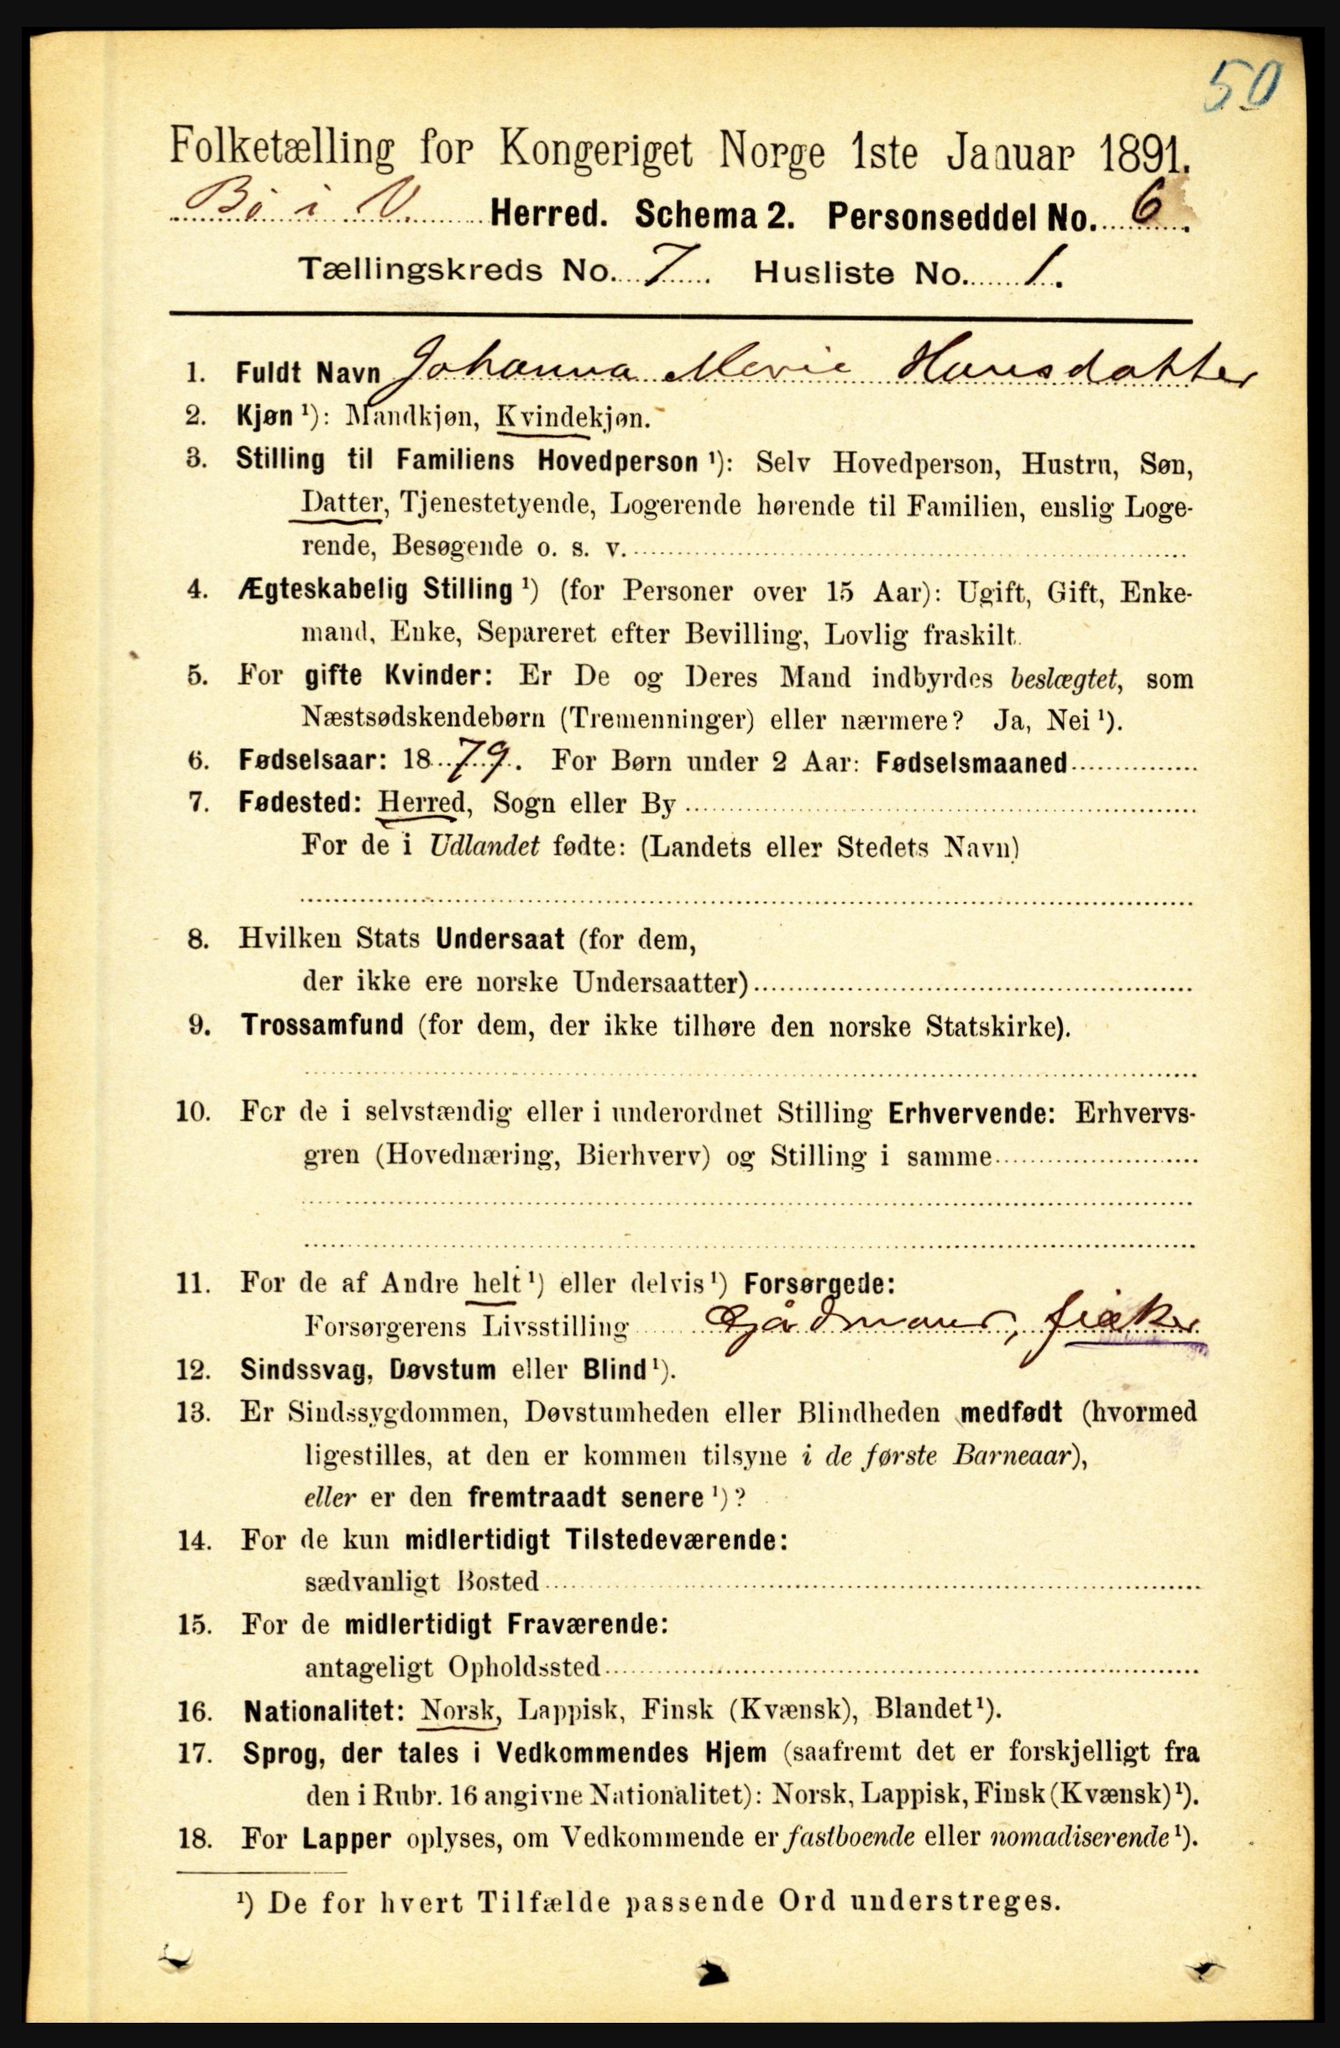 50
Folketælling for Kongeriget Norge 1ste Januar 1891.
Bø i V. Herred. Schema 2. Personseddel No. 6.
Tællingskreds No. 7. Husliste No. 1.
1. Fuldt Navn Johanna Marie Hansdatter
2. Kjøn ¹): Mandkjøn, Kvindekjøn.
3. Stilling til Familiens Hovedperson ¹): Selv Hovedperson, Hustru, Søn,
Datter, Tjenestetyende, Logerende hørende til Familien, enslig Loge-
rende, Besøgende o. s. v.
4. Ægteskabelig Stilling ¹) (for Personer over 15 Aar): Ugift, Gift, Enke-
mand, Enke, Separeret efter Bevilling, Lovlig fraskilt.
5. For gifte Kvinder: Er De og Deres Mand indbyrdes beslægtet, som
Næstsødskendebørn (Tremenninger) eller nærmere? Ja, Nei ¹).
6. Fødselsaar: 1879. For Børn under 2 Aar: Fødselsmaaned
7. Fødested: Herred, Sogn eller By
For de i Udlandet fødte: (Landets eller Stedets Navn)
8. Hvilken Stats Undersaat (for dem,
der ikke ere norske Undersaatter)
9. Trossamfund (for dem, der ikke tilhøre den norske Statskirke).
10. For de i selvstændig eller i underordnet Stilling Erhvervende: Erhvervs-
gren (Hovednæring, Bierhverv) og Stilling i samme
11. For de af Andre helt ¹) eller delvis ¹) Forsørgede:
Forsørgerens Livsstilling Gårdmand, fisker
12. Sindssvag, Døvstum eller Blind ¹).
13. Er Sindssygdommen, Døvstumheden eller Blindheden medfødt (hvormed
ligestilles, at den er kommen tilsyne i de første Barneaar),
eller er den fremtraadt senere ¹)?
14. For de kun midlertidigt Tilstedeværende:
sædvanligt Bosted
15. For de midlertidigt Fraværende:
antageligt Opholdssted
16. Nationalitet: Norsk, Lappisk, Finsk (Kvænsk), Blandet ¹).
17. Sprog, der tales i Vedkommendes Hjem (saafremt det er forskjelligt fra
den i Rubr. 16 angivne Nationalitet): Norsk, Lappisk, Finsk (Kvænsk) ¹).
18. For Lapper oplyses, om Vedkommende er fastboende eller nomadiserende ¹).
¹) De for hvert Tilfælde passende Ord understreges.